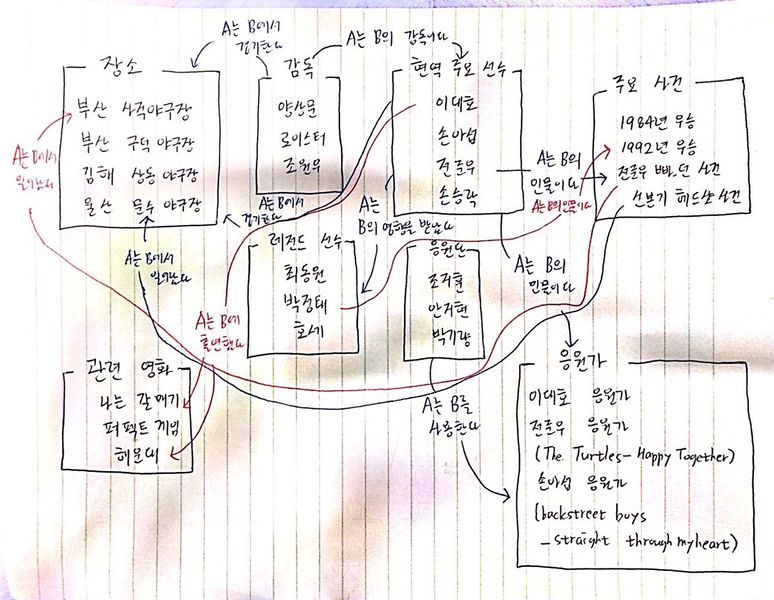 A는 B에서
경기한다
A는 B의 감독이다
장소
부산 사직야구장
부산 구덕 야구장
김해 상동 야구장
울산 문수 야구장
감독
양상문
로이스터
조원우
현역 주요 선수
이대호
손아섭
전준우
손승락
주요 사건
1984년 우승
1992년 우승
전준우 빠던 사건
헤드샷 사건
A는 B에서
일어났다
A는 B에서
경기한다
A는
B의 영향을 받았다
A는 B의
인물이다
A는 B의 인물이다
A는 B의
인물이다
A는 B에서
일어났다
레전드 선수
최동원
박정태
호세
응원단
조지훈
안지현
박기량
A는 B에
출연했다
관련 영화
나는 갈매기
퍼펙트 게임
해운대
A는 B를
사용한다
응원가
이대호 응원가
전준우 응원가
(The Turtles - Happy Together)
손아섭 응원가
(backstreet boys
- straight through my heart)